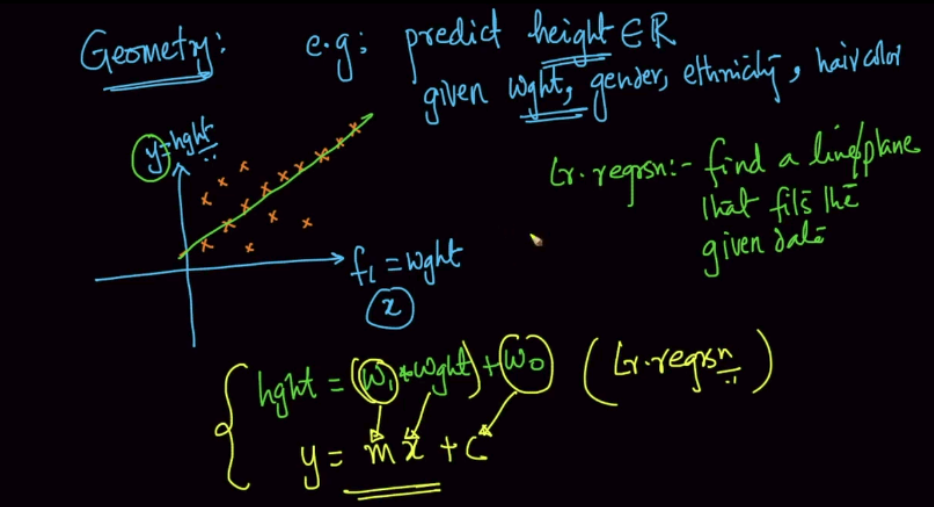 Geometry: e.g: predict height ∈ R
given wght, gender, ethnicity, haircolor
y=hght
Lr. regrsn:- find a line/plane
that fits the
given data
f₁ = wght
x
hght = (w₁*wght)+w₀ (Lr.regrsn)
y = mx + c